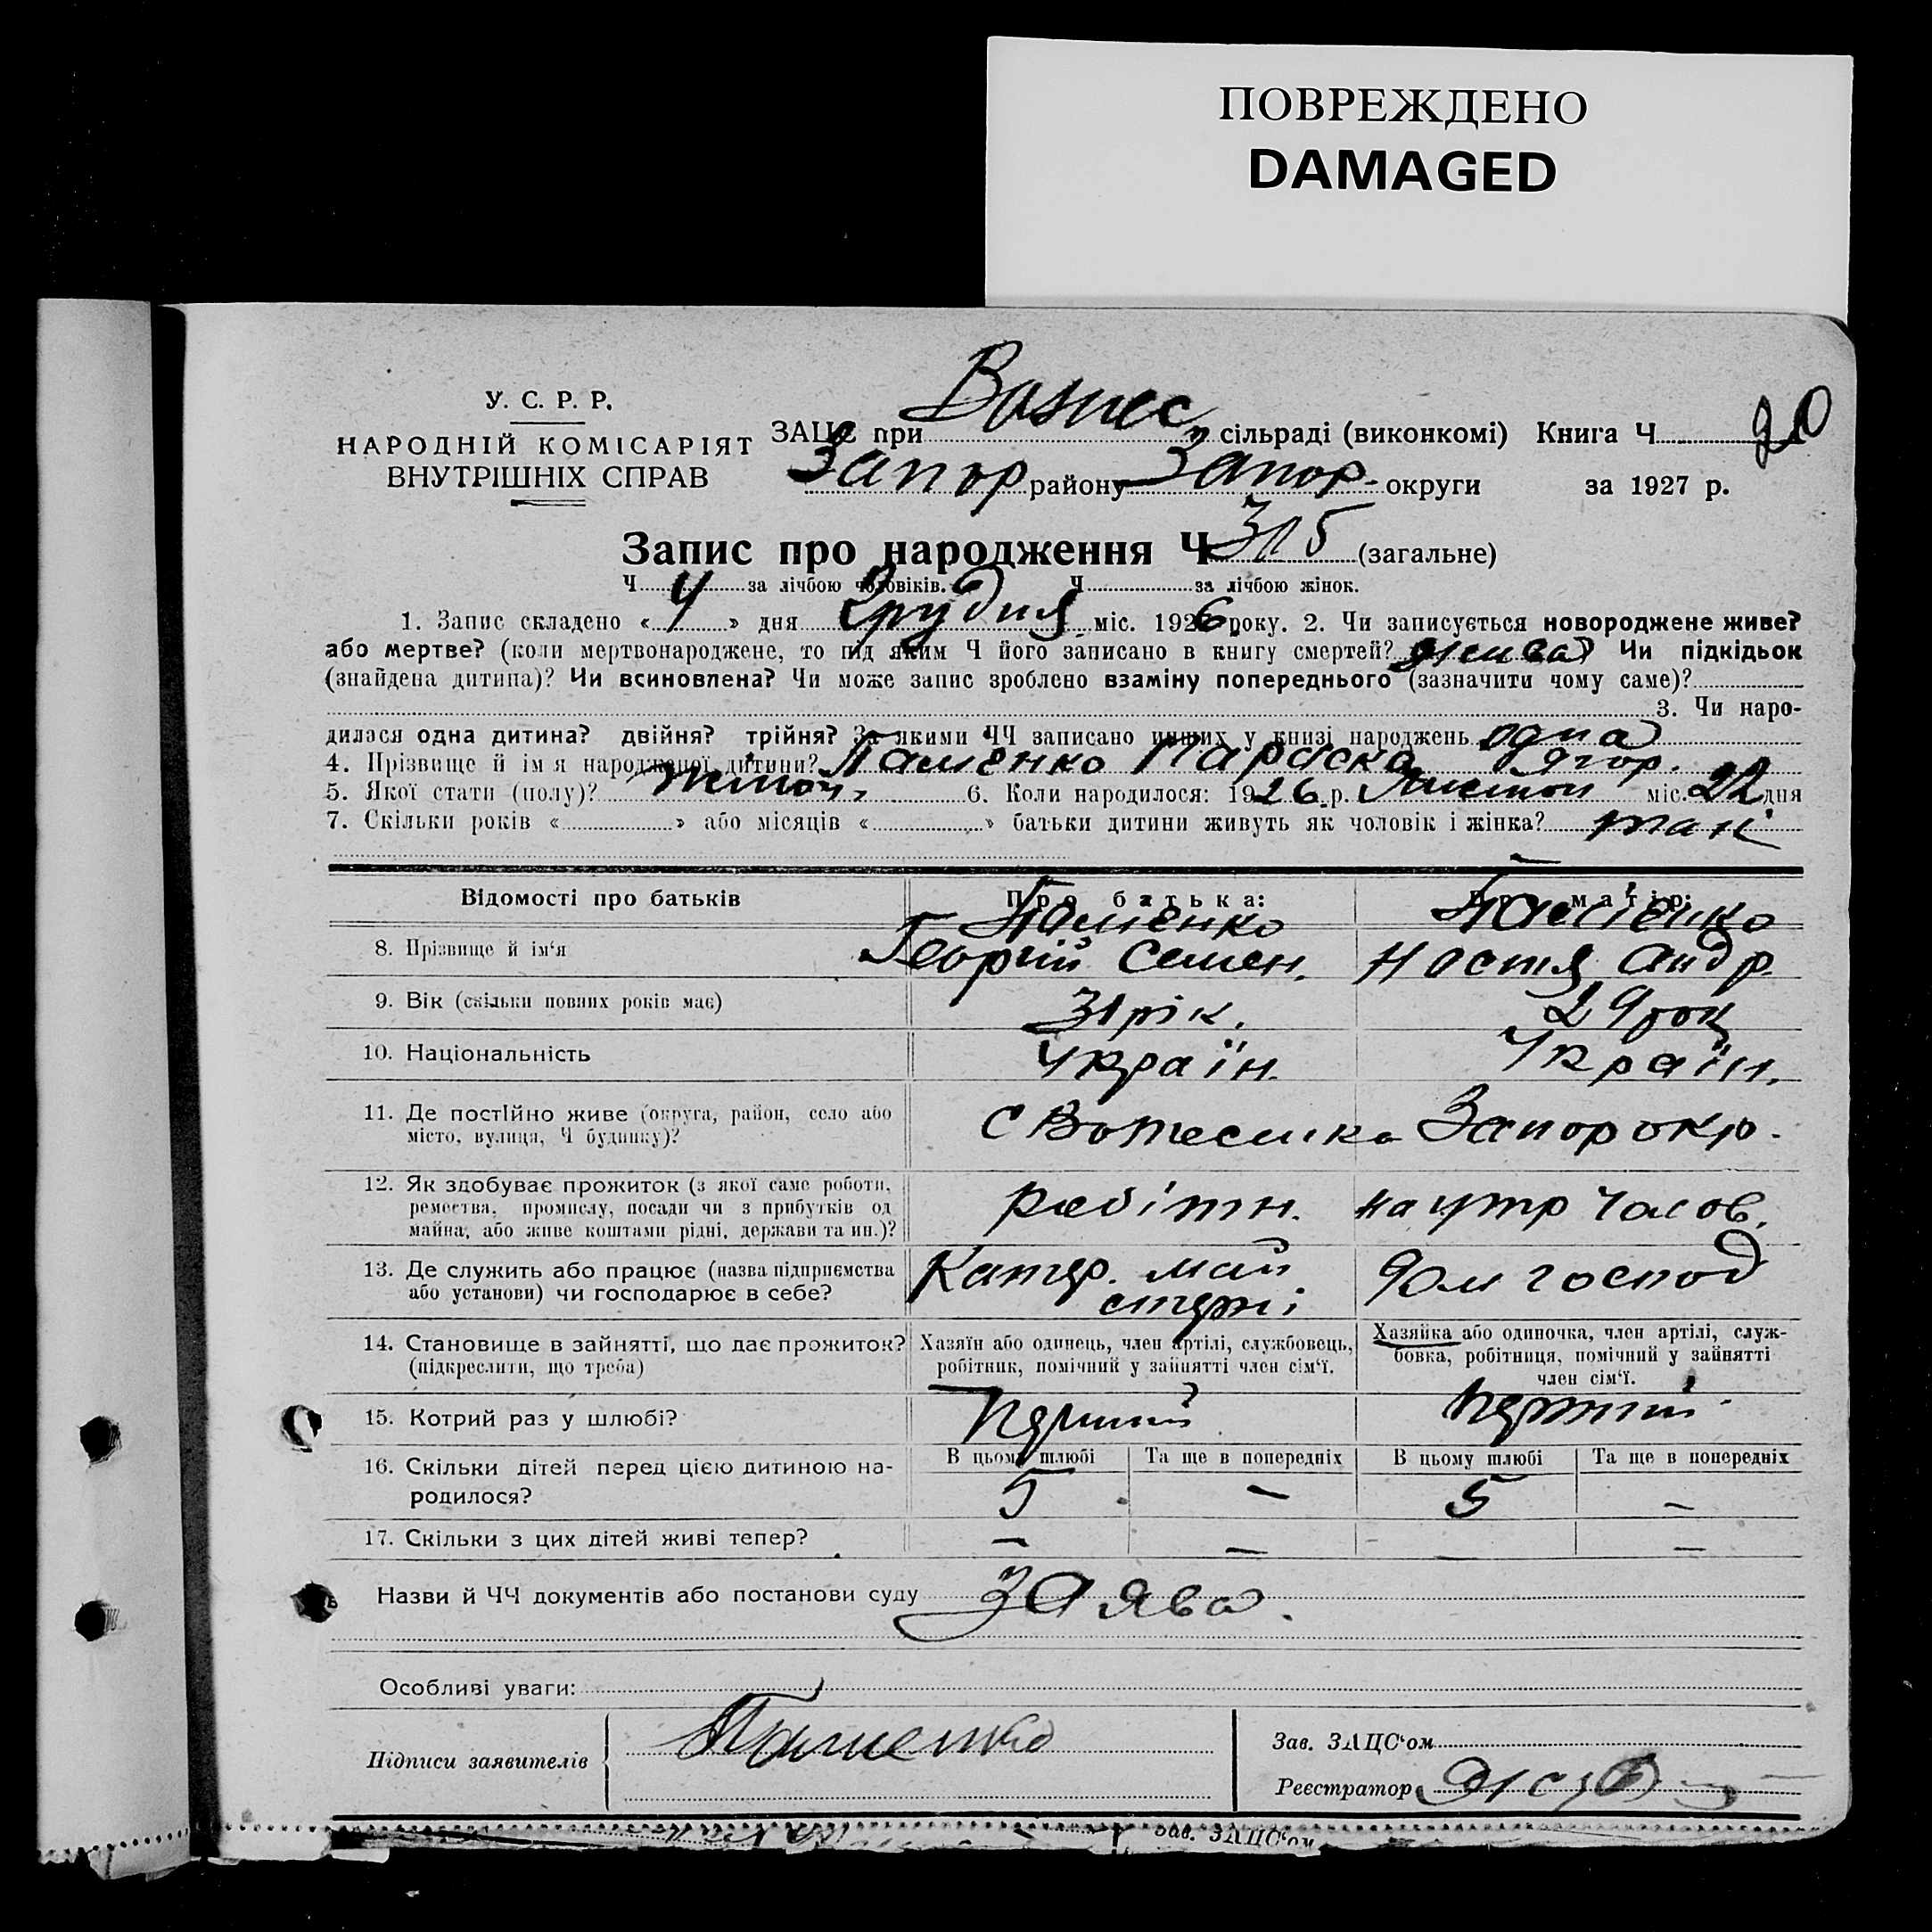 ПОВРЕЖДЕНО
DAMAGED
У. С. Р. Р.
НАРОДНІЙ КОМІСАРІЯТ
ВНУТРІШНІХ СПРАВ
ЗАЦС при Вознес. сільраді (виконкомі) Книга Ч 20
Запор району Запор. округи за 1927 р.
Запис про народження Ч 315 (загальне)
Ч за лічбою чоловіків. Ч за лічбою жінок.
1. Запис складено « 4 » дня Грудня міс. 1926 року. 2. Чи записується новороджене живе?
або мертве? (коли мертвонароджене, то під яким Ч його записано в книгу смертей? жива Чи підкідьок
(знайдена дитина)? Чи всиновлена? Чи може запис зроблено взаміну попереднього (зазначити чому саме)?
3. Чи наро-
дилася одна дитина? двійня? трійня? За якими ЧЧ записано инших у книзі народжень одна
4. Прізвище й ім'я народженої дитини? Параска
5. Якої стати (полу)? 6. Коли народилося: 1926 р. Листоп міс. 22 дня
7. Скільки років « » або місяців « » батьки дитини живуть як чоловік і жінка? так
Відомості про батьків Про батька: Про матір:
8. Прізвище й ім'я Георгій Семен. Настя Андр.
9. Вік (скільки повних років має) 31 рік. 29 рок
10. Національність Україн. Україн.
11. Де постІйно живе (округа, район, село або
місто, вулиця, Ч будинку)?
с Запор окр.
12. Як здобуває прожиток (з якої саме роботи,
ремества, промислу, посади чи з прибутків од
майна, або живе коштами рідні, держави та ин.)?
робітн. на утр чолов.
13. Де служить або працює (назва підприємства
або установи) чи господарює в себе?
Катер. май
стерні
Дом господ
14. Становище в зайнятті, що дає прожиток?
(підкреслити, що треба)
Хазяїн або одинець, член артілі, службовець,
робітник, помічний у зайнятті член сім'ї.
Хазяйка або одиночка, член артілі, служ-
бовка, робітниця, помічний у зайнятті
член сім'ї.
15. Котрий раз у шлюбі? Перший Перший
16. Скільки дітей перед цією дитиною на-
родилося?
В цьому шлюбі Та ще в попередніх В цьому шлюбі Та ще в попередніх
5 – 5 –
17. Скільки з цих дітей живі тепер? – – – –
Назви й ЧЧ документів або постанови суду Заява.
Особливі уваги:
Підписи заявителів
Зав. ЗАЦС'ом
Реєстратор
Зав. ЗАЦС'ом